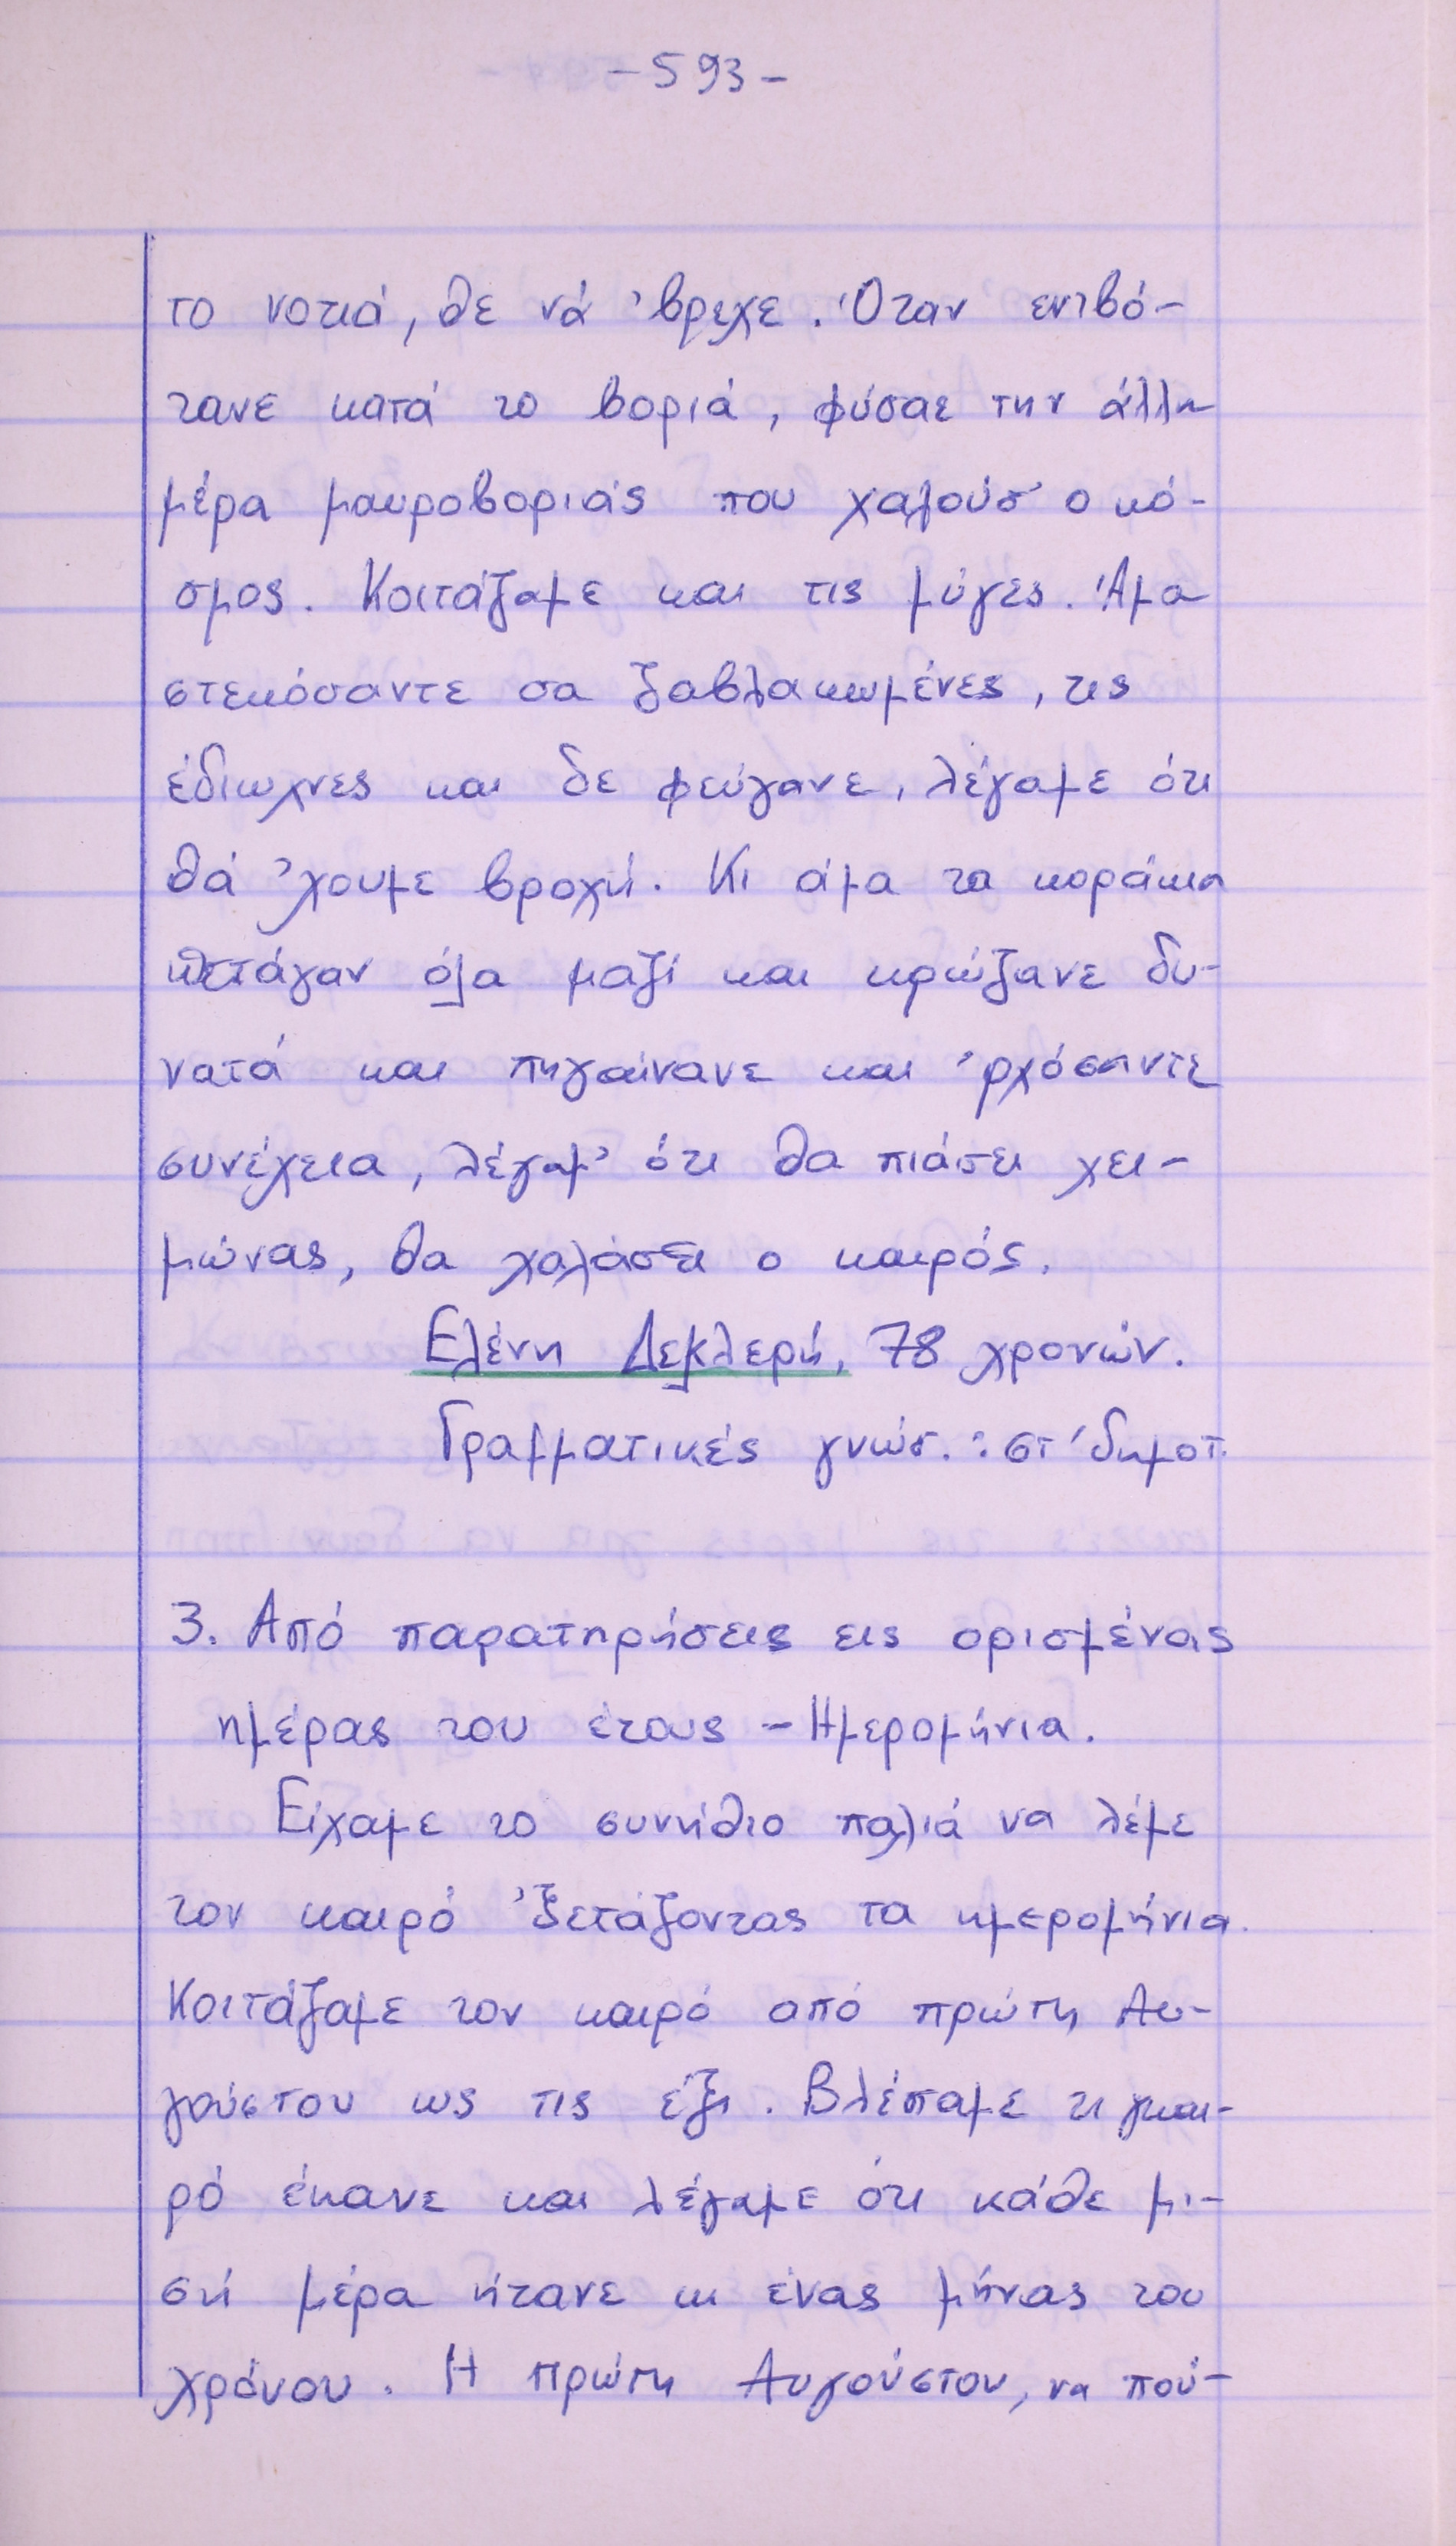 -593-
το νοτιά, θε νά 'βρεχε. Όταν εντβό-
τανε κατά το βοριά, φύσαε την άλλη
μέρα μαυροβοριάς που χαλούσ' ο κό-
σμος. Κοιτάζαμε και τις μύγες. Άμα
στεκόσαντε σα ζαβλακωμένες, τις
έδιωχνες και δε φεύγανε, λέγαμε ότι
θά 'χουμε βροχή. Κι άμα τα κοράκια
πετάγαν όλα μαζί και κρώζανε δυ-
νατά και πηγαίνανε και 'ρχόσαντε
συνέχεια, λέγαμ' ότι θα πιάσει χει-
μώνας, θα χαλάσει ο καιρός.
Ελένη Δεκλερή, 78 χρονών.
Γραμματικές γνώσ. : στ' δημοτ.
3. Από παρατηρήσεις εις ορισμένας
ημέρας του έτους - Ημερομήνια.
Είχαμε το συνήθιο παλιά να λέμε
τον καιρό 'ξετάζοντας τα ημερομήνια.
Κοιτάζαμε τον καιρό από πρώτη Αυ-
γούστου ως τις έξι. Βλέπαμε τι γκαι-
ρό έκανε και λέγαμε ότι κάθε μι-
σή μέρα ήτανε κι ένας μήνας του
χρόνου. Η πρώτη Αυγούστου, να πού-